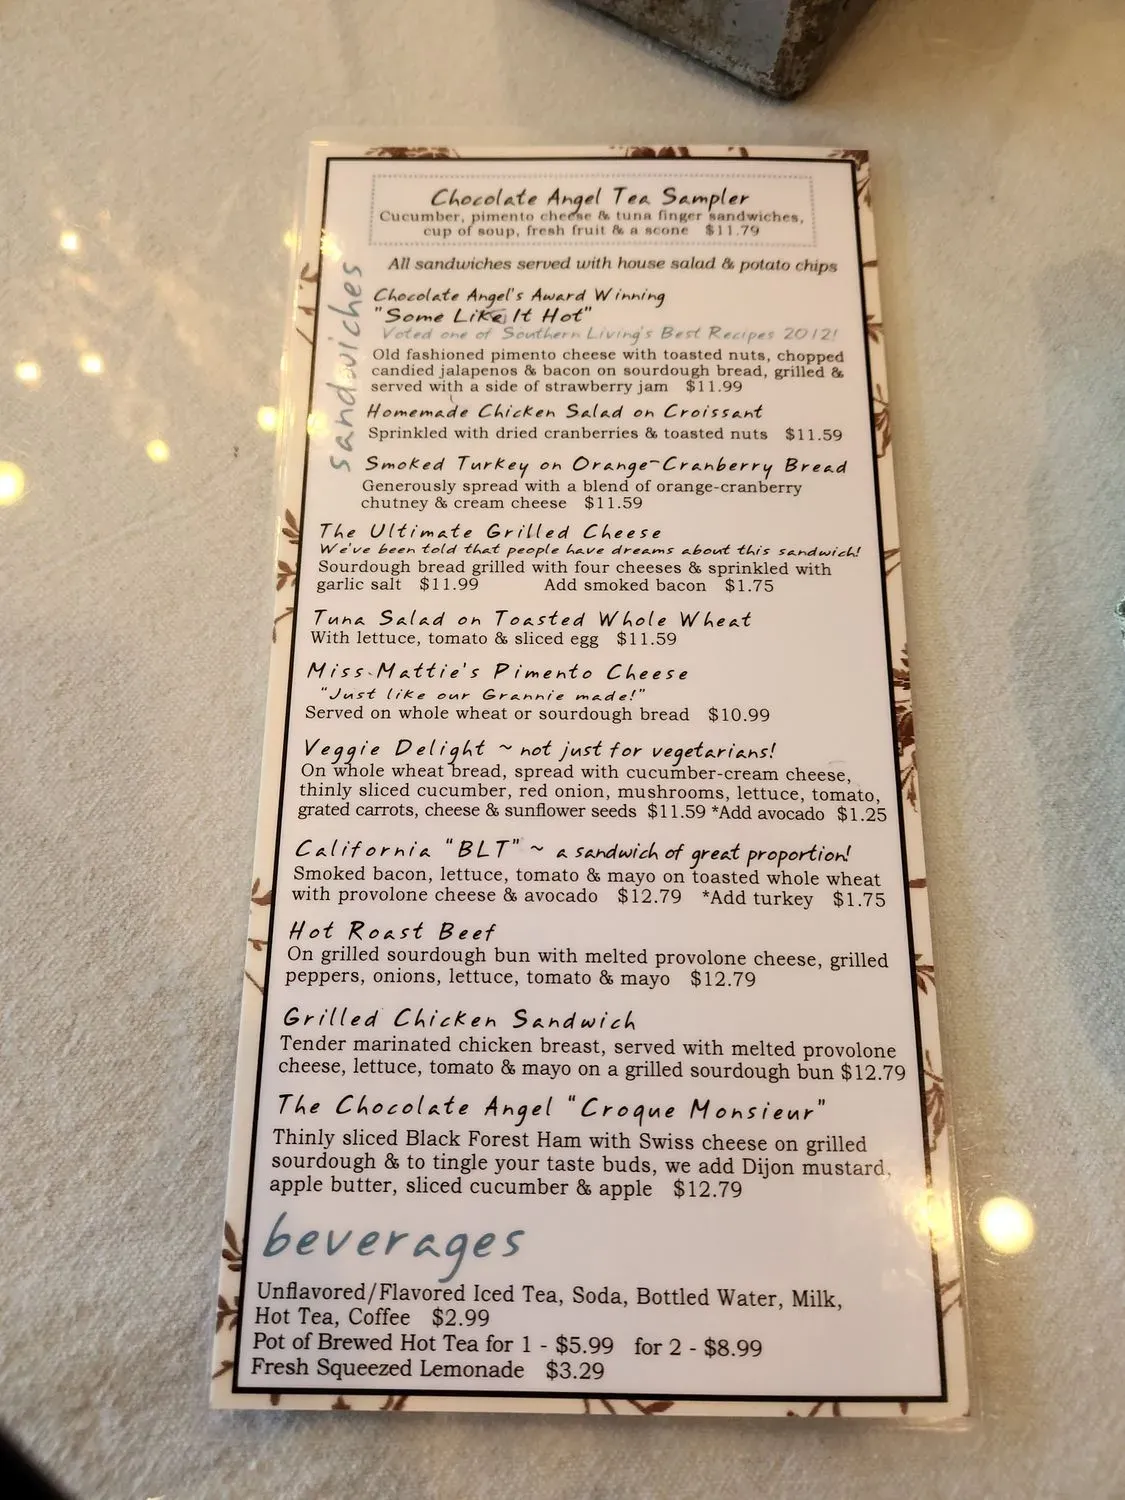 Chocolate Angel Tea Sampler
Cucumber, pimento cheese & tuna finger sandwiches,
cup of soup, fresh fruit & a scone $11.79
All sandwiches served with house salad & potato chips
sandwiches
Chocolate Angel's Award Winning
"Some Like It Hot"
Voted one of Southern Living's Best Recipes 2012!
Old fashioned pimento cheese with toasted nuts, chopped
candied jalapenos & bacon on sourdough bread, grilled &
served with a side of strawberry jam $11.99
Homemade Chicken Salad on Croissant
Sprinkled with dried cranberries & toasted nuts $11.59
Smoked Turkey on Orange-Cranberry Bread
Generously spread with a blend of orange-cranberry
chutney & cream cheese $11.59
The Ultimate Grilled Cheese
We've been told that people have dreams about this sandwich!
Sourdough bread grilled with four cheeses & sprinkled with
garlic salt $11.99 Add smoked bacon $1.75
Tuna Salad on Toasted Whole Wheat
With lettuce, tomato & sliced egg $11.59
Miss Mattie's Pimento Cheese
"Just like our Grannie made!"
Served on whole wheat or sourdough bread $10.99
Veggie Delight ~ not just for vegetarians!
On whole wheat bread, spread with cucumber-cream cheese,
thinly sliced cucumber, red onion, mushrooms, lettuce, tomato,
grated carrots, cheese & sunflower seeds $11.59 *Add avocado $1.25
California "BLT" ~ a sandwich of great proportion!
Smoked bacon, lettuce, tomato & mayo on toasted whole wheat
with provolone cheese & avocado $12.79 *Add turkey $1.75
Hot Roast Beef
On grilled sourdough bun with melted provolone cheese, grilled
peppers, onions, lettuce, tomato & mayo $12.79
Grilled Chicken Sandwich
Tender marinated chicken breast, served with melted provolone
cheese, lettuce, tomato & mayo on a grilled sourdough bun $12.79
The Chocolate Angel "Croque Monsieur"
Thinly sliced Black Forest Ham with Swiss cheese on grilled
sourdough & to tingle your taste buds, we add Dijon mustard,
apple butter, sliced cucumber & apple $12.79
beverages
Unflavored/Flavored Iced Tea, Soda, Bottled Water, Milk,
Hot Tea, Coffee $2.99
Pot of Brewed Hot Tea for 1 - $5.99 for 2 - $8.99
Fresh Squeezed Lemonade $3.29